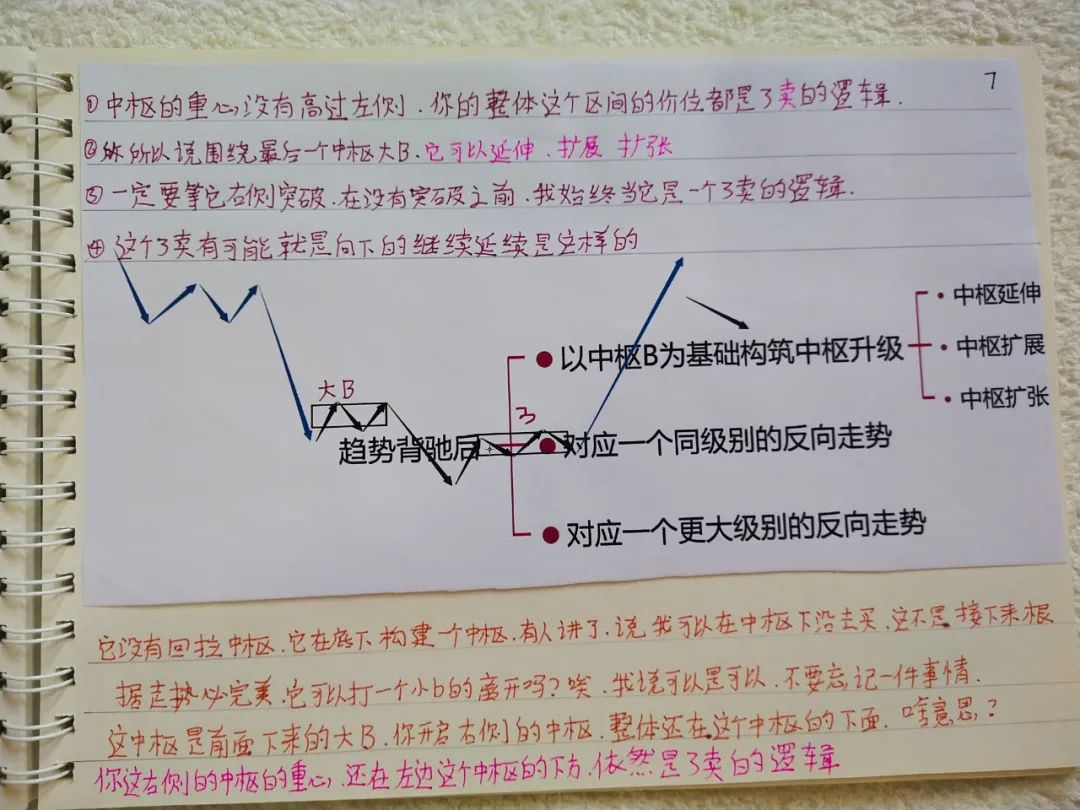 7
①中枢的重心没有高过左侧.你的整体这个区间的价位都是3卖的逻辑.
②你所以说围绕最后一个中枢大B.它可以延伸.扩展 扩张
③一定要等它右侧突破.在没有突破之前.我始终当它是一个3卖的逻辑.
④这个3卖有可能就是向下的继续延续是这样的
中枢延伸
以中枢B为基础构筑中枢升级
中枢扩展
中枢扩张
大B
3
趋势背驰后
对应一个同级别的反向走势
对应一个更大级别的反向走势
它没有回拉中枢.它在底下构建一个中枢.有人讲了.说我可以在中枢下沿去买.这不是接下来根
据走势必完美.它可以打一个小b的离开吗?唉.我说可以是可以.不要忘记一件事情.
这中枢是前面下来的大B.你开启右侧的中枢.整体还在这个中枢的下面.啥意思?
你这右侧的中枢的重心.还在左边这个中枢的下方.依然是3卖的逻辑